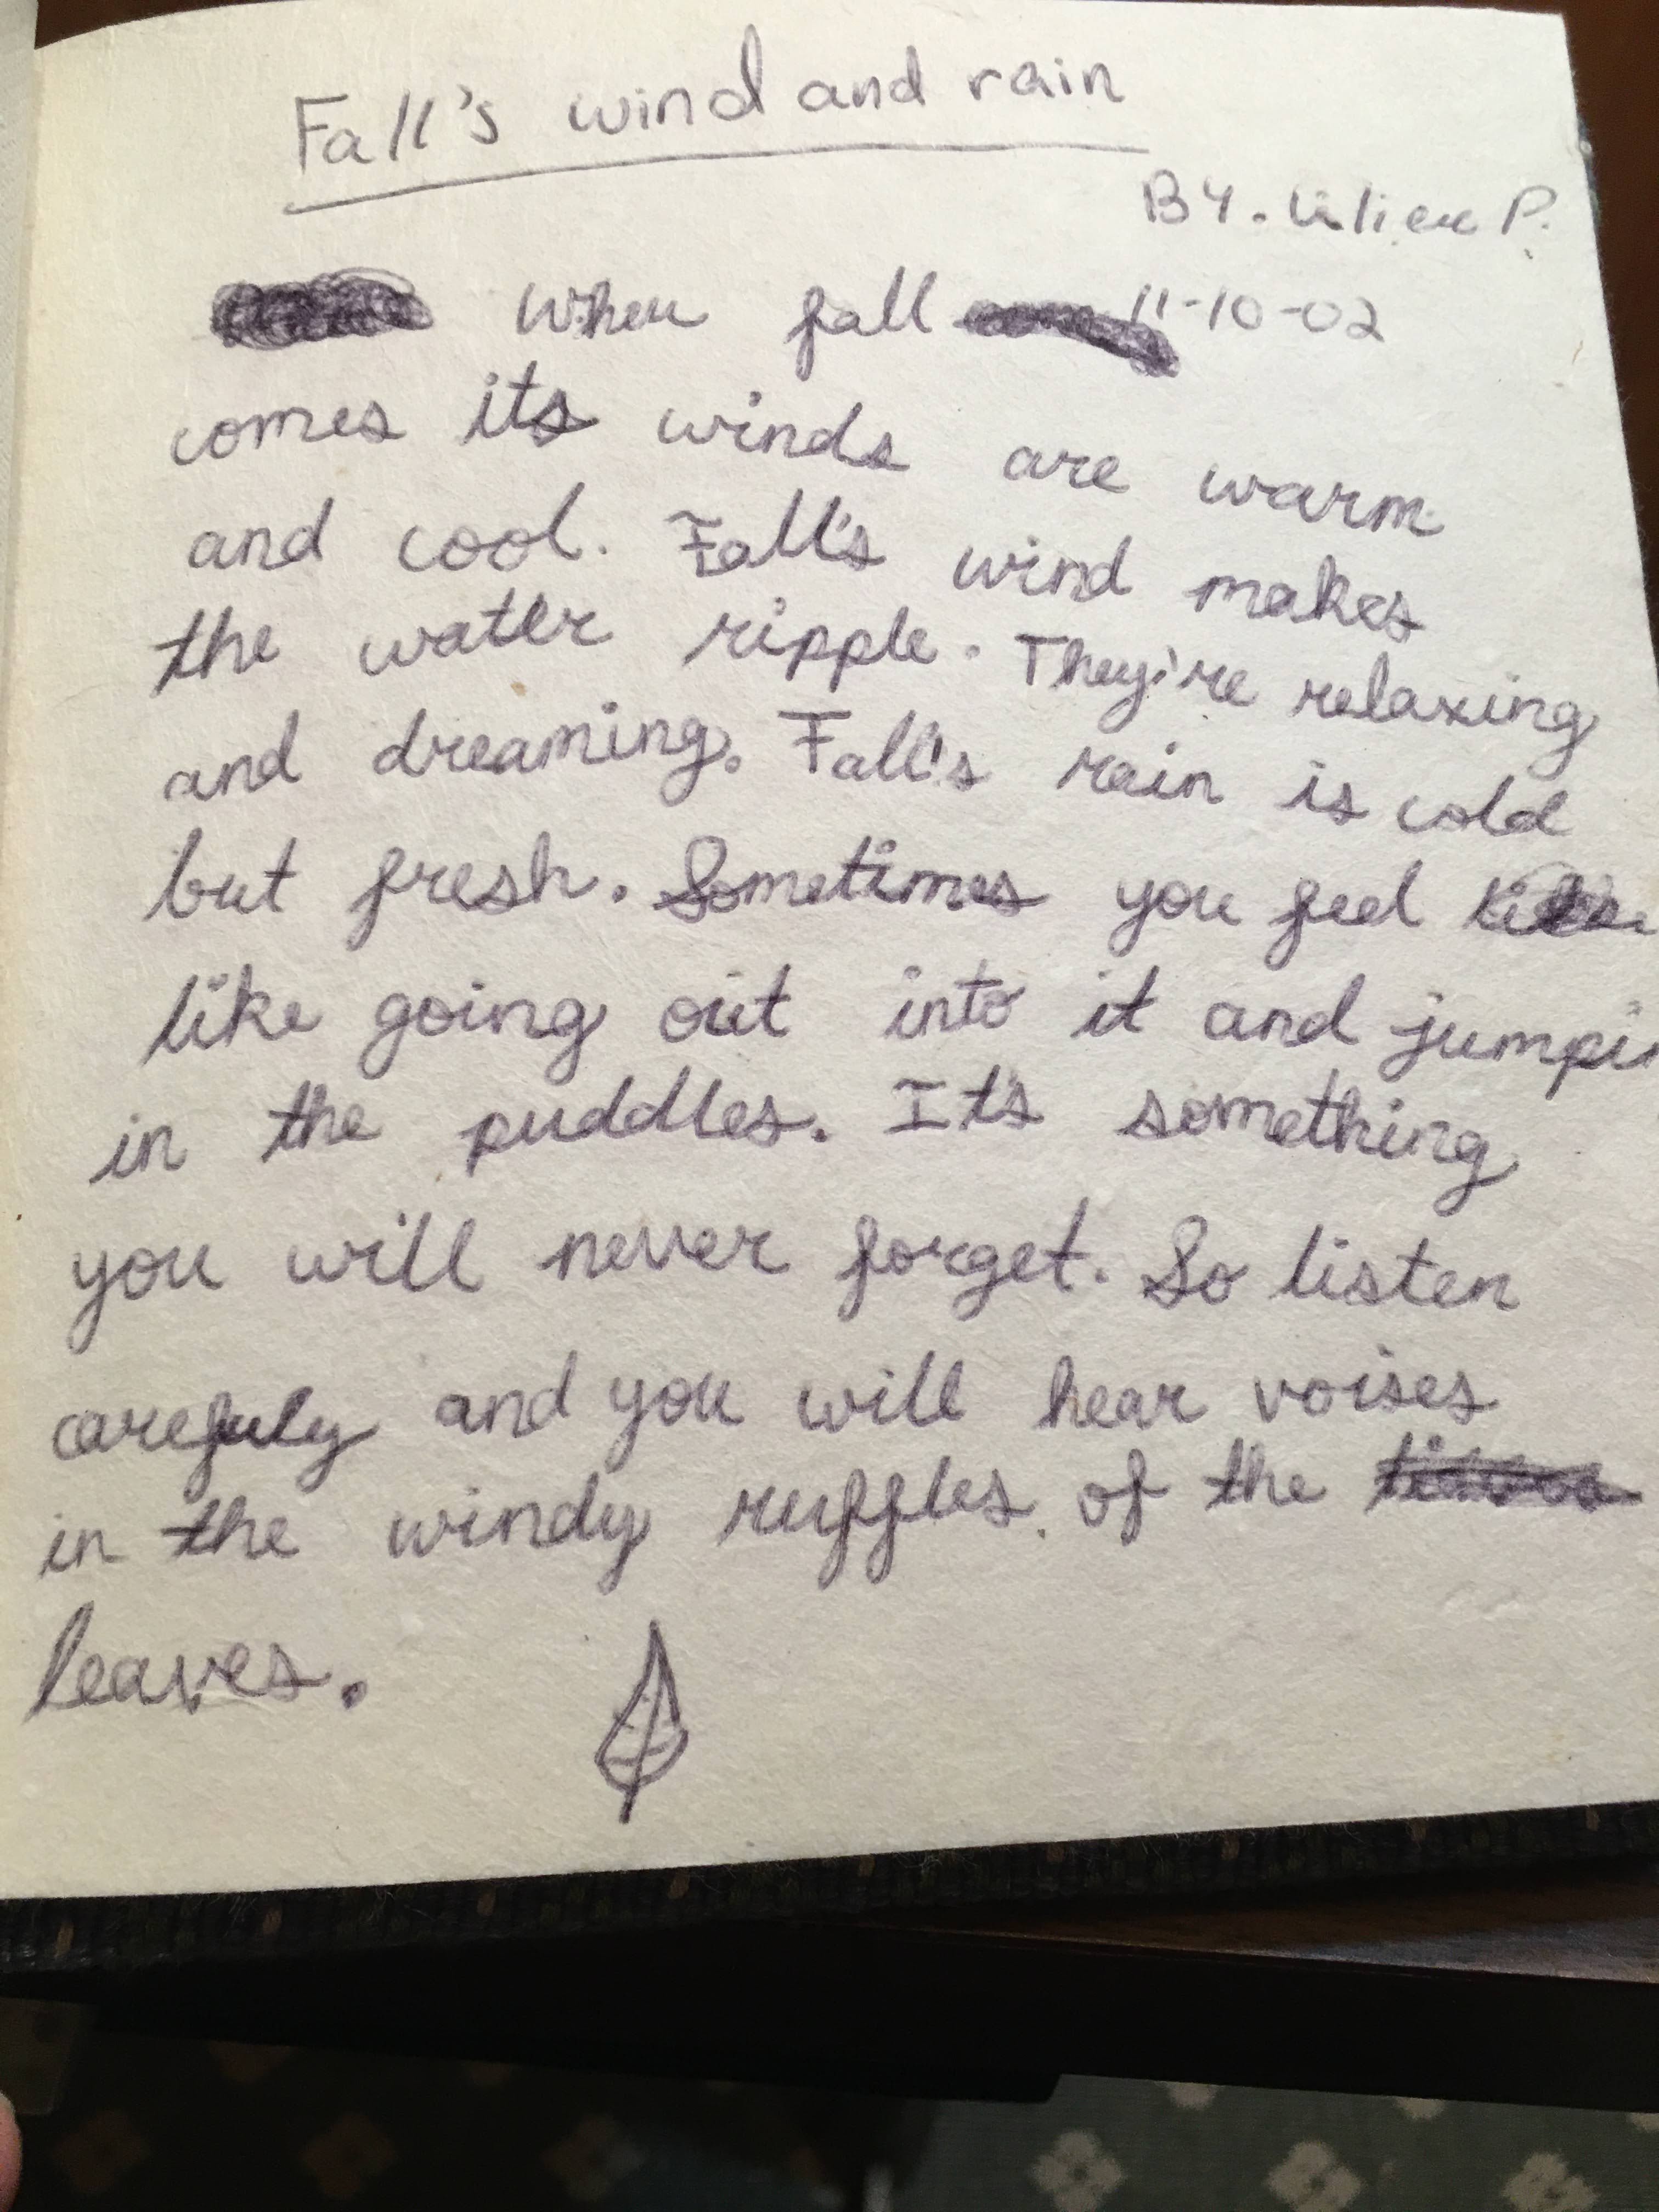 Fall's wind and rain
BY. Lilian P.
When fall 11-10-02
comes its winds are warm
and cool. Fall's wind makes
the water ripple. They're relaxing
and dreaming. Fall's rain is cold
but fresh. Sometimes you feel
like going out into it and jumpin
in the puddles. It's something
you will never forget. So listen
carefuly and you will hear voises
in the windy ruffles of the
leaves.